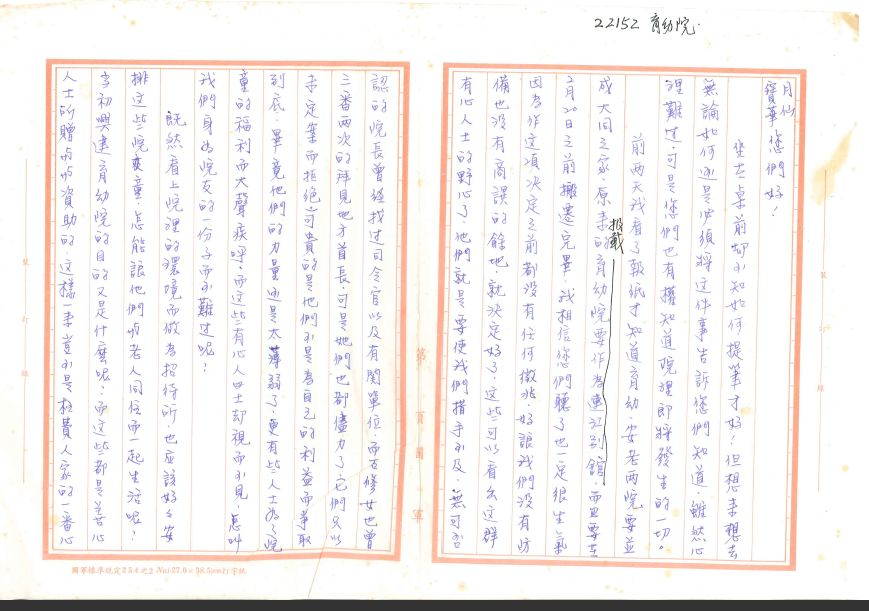 22152 育幼院.
月仙
寶華 您們好！
坐在桌前却不知如何提筆才好！但想來想去
無論如何還是必須將這件事告訴您們知道，雖然心
裡難过，可是您們也有權知道院裡即將發生的一切。
前兩天我看了報紙才知道育幼、安老兩院要並
成大同之家，原來的育幼院要作為連江別館，而且要在
報載
2月20日之前搬遷完畢，我相信您們聽了也一定很生氣
因為作這項決定之前都沒有任何徵兆，好讓我們沒有防
備也沒有商談的餘地，就決定好了，這些可以看出這群
有心人士的野心了，他們就是要使我們措手不及，無可否
認的院長曾經找过司令官以及有関單位，而石修女也曾
三番兩次的拜見地方首長，可是她們也都儘力了，它們只以
未定案而拒絕，可貴的是他們不是為自己的利益而爭取
到底，畢竟他們的力量還是太薄弱了，更有些人士為了院
童的福利而大聲疾呼，而這些有心人士却視而不見，怎叫
我們身為院友的一份子而不難过呢？
既然看上院裡的環境而做為招待所，也應該好好安
排這些院童，怎能讓他們明老人同住而一起生活呢？
当初興建育幼院的目的又是什麼呢，而這些都是善心
人士的贈與與資助的，這樣一來豈不是枉費人家的一番心
第 頁 國 軍
裝 訂 線
裝 訂 線
國軍標準規定25本之2 No:1-27.0×38.5(cm)打字紙